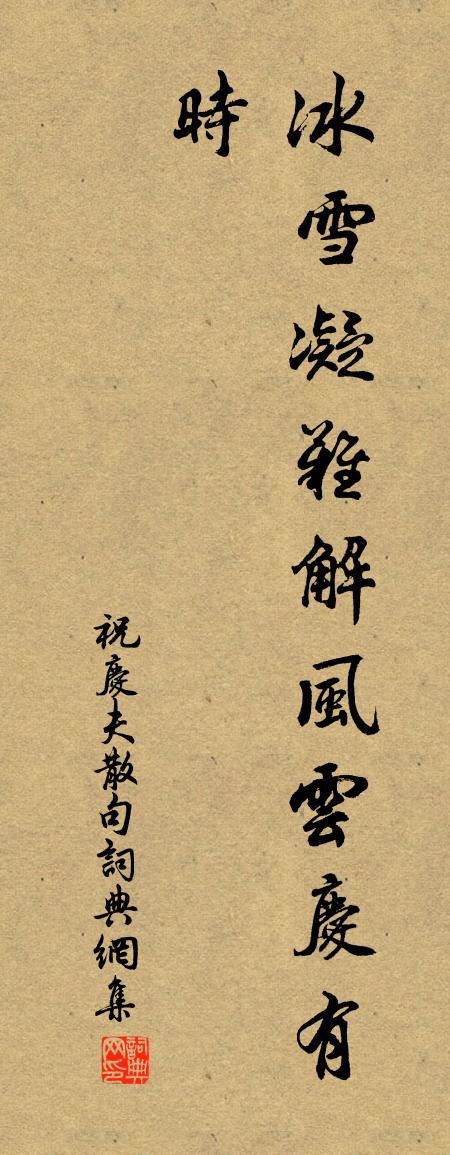 冰雪凝難解風雲慶有
時
祝慶夫散句詞典網集
詞典
网印